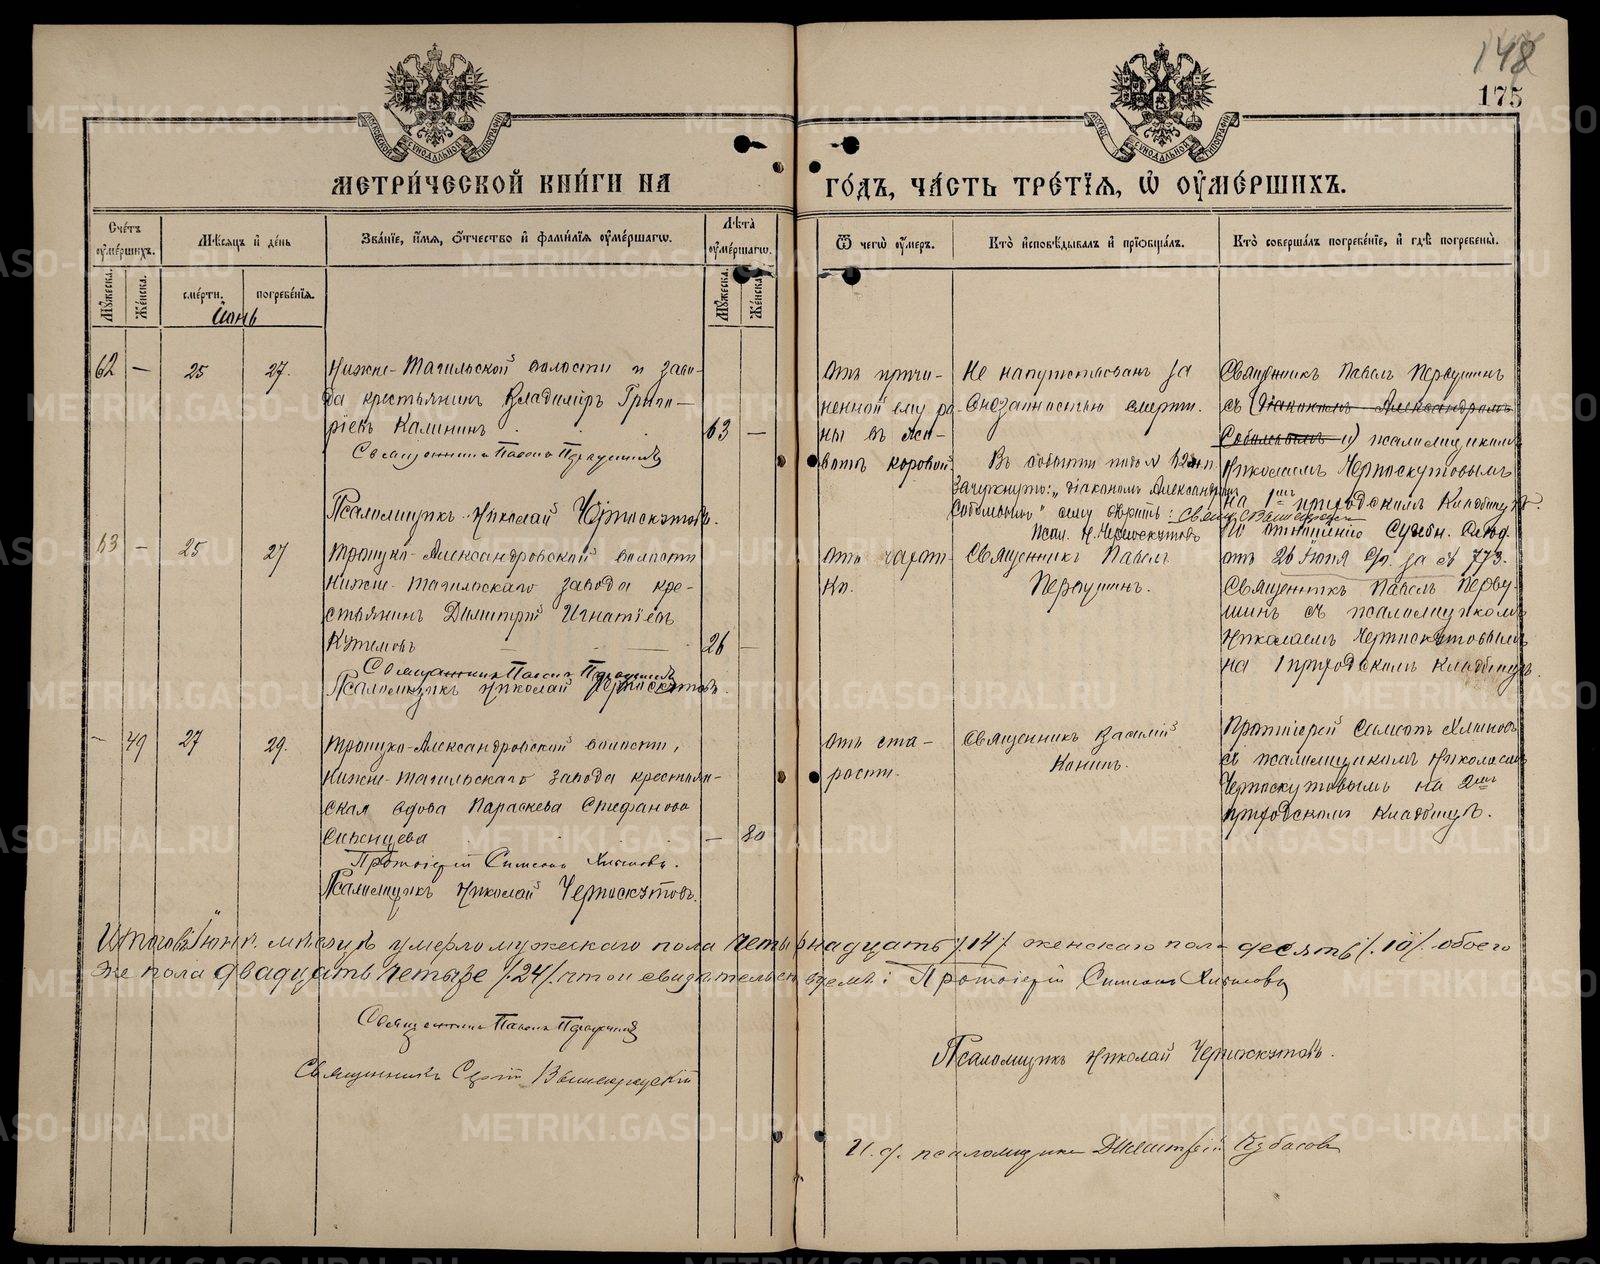 148
175
МЕТРИ́ЧЕСКОЙ КНИ́ГИ НА
ГО́ДЪ, ЧА́СТЬ ТРЕ́ТІѦ, Ѡ҆ ОУ҆МЕ́РШИХЪ.
Сче́тъ оу҆ме́ршихъ.
Мѣ́сѧцъ и҆ де́нь
Зва́нїе, и҆́мѧ, ѻ҆́тчество и҆ фами́лїѧ оу҆ме́ршагѡ.
Лѣ́та оу҆ме́ршагѡ.
Ѿ чегѡ̀ оу҆́меръ.
Кто̀ и҆сповѣ́дывалъ и҆ прїѡбща́лъ.
Кто̀ соверша́лъ погребе́нїе, и҆ гдѣ̀ погребены̀.
Мꙋ́жеска.
Же́нска.
сме́рти.
погребе́нїѧ.
Мꙋ́жеска.
Же́нска.
Іюнь
62 — 25 27.
Нижне-Тагильской волости и заво-
да крестьянинъ Владиміръ Григо-
ріевъ Калининъ . . . 63 —
Священникъ Павелъ Первушинъ
Псаломщикъ Николай Черноскутовъ.
Отъ причи-
ненной ему ра-
ны въ жи-
вотъ коровой
Не напутствованъ за
внезапностью смерти.
Въ событіи подъ № 62 м.п.
зачеркнуто: „діакономъ Александромъ
псал. Н. Черноскутовъ
Священникъ Павелъ Первушинъ
съ (діакономъ Александромъ
и) псаломщикомъ
Николаемъ Черноскутовымъ
на 1мъ приходскомъ кладбищѣ
по отношенію Судебн. Слѣд.
отъ 26 Іюня с/г. за № 773.
63 — 25 27
Троицко-Александровской волости
Нижне-Тагильскаго завода кре-
стьянинъ Димитрій Игнатіевъ
26 —
Священникъ Павелъ Первушинъ
Псаломщикъ Николай Черноскутовъ.
Отъ чахот-
ки.
Священникъ Павелъ
Первушинъ.
Священникъ Павелъ Перву-
шинъ съ псаломщикомъ
Николаемъ Черноскутовымъ
на 1 приходскомъ кладбищѣ.
— 49 27 29.
Троицко-Александровской волости,
Нижне-Тагильскаго завода крестьян-
ская вдова Параскева Стефанова
— 80
Протоіерей Симеонъ Хлыновъ.
Псаломщикъ Николай Черноскутовъ.
отъ ста-
рости.
Священникъ Василій
Конинъ.
Протоіерей Симеонъ Хлыновъ
съ псаломщикомъ Николаемъ
Черноскутовымъ на 2мъ
приходскомъ кладбищѣ.
Итого въ Іюнѣ мѣсяцѣ умерло мужескаго пола четырнадцать /14/ женскаго пола десять /10/. обоего
же пола двадцать четыре /24/. что и свидѣтельствуемъ: Протоіерей Симеонъ Хлыновъ
Священникъ Павелъ Первушинъ
Священникъ Сергій Вышегородскій
Псаломщикъ Николай Черноскутовъ.
И. д. псаломщика Димитрій Кубасовъ
METRIKI.GASO-URAL.RU